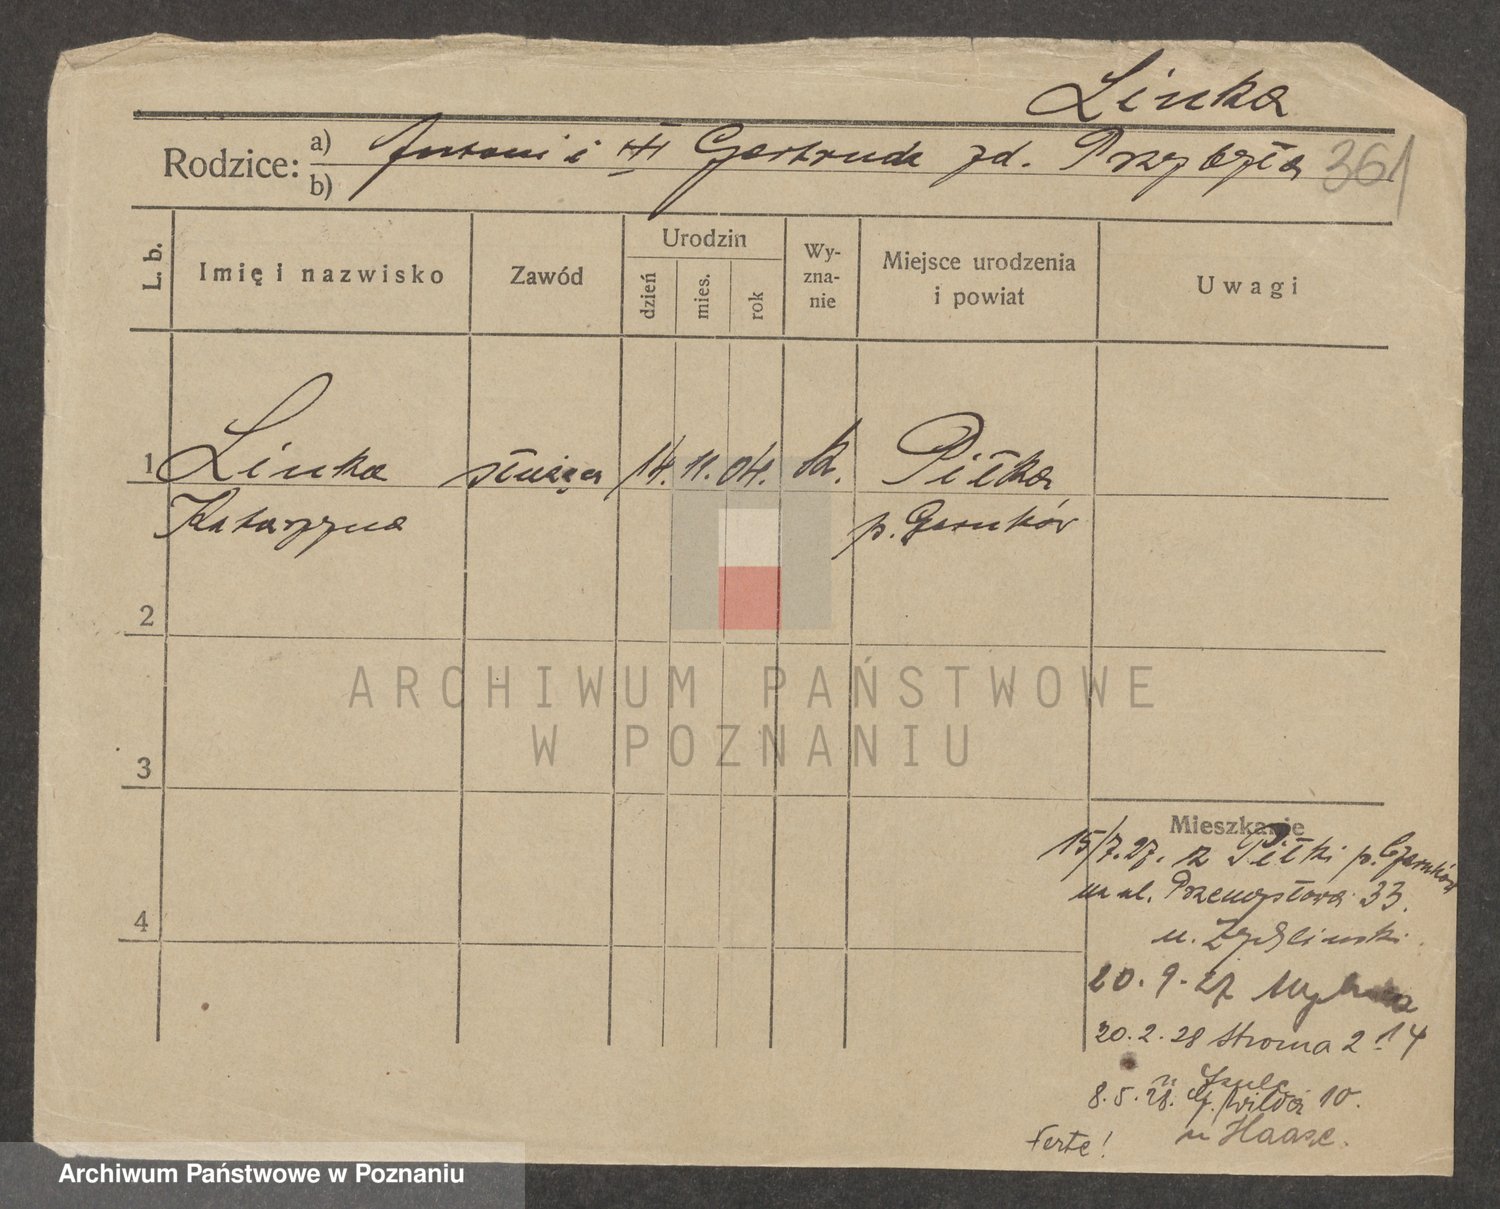 Linka
Rodzice: a) Antoni i Gertruda zd. Przybyła 361
b)
L. b. Imię i nazwisko Zawód Urodzin dzień mies. rok Wy-zna-nie Miejsce urodzenia i powiat Uwagi
1 Linka służąca 14. 11. 04. k. Piłka
Katarzyna p. Czarnków
2
ARCHIWUM PAŃSTWOWE
W POZNANIU
3
Mieszkanie
15/7.27. z Piłki p. Czarnków
4
na ul. Przemysłowa 33.
u. Zydlinski
20. 9. 27
20. 2. 28 Stroma 2
8. 5. 28. Wilda 10.
u Haase.
Verte!
Archiwum Państwowe w Poznaniu